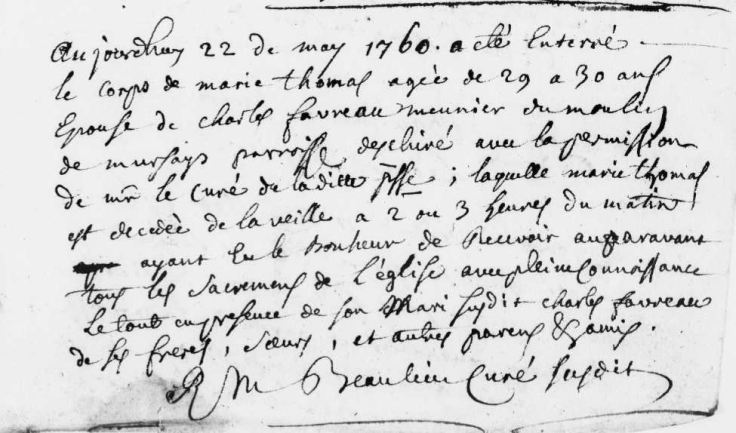 Aujourdhuy 22 de may 1760. a eté Enterré
le corps de marie thomas agée de 29 a 30 ans
Epouse de charles favreau meunier du moulin
de mursays parroisse deschiré avec la permission
de mr le curé de la ditte psse ; laquelle marie thomas
est decedée de la veille a 2 ou 3 heures du matin
ayant Eu le Bonheur de Recevoir auparavant
tous les sacremens de l'église avec pleine connoissance
Le tout en presence de son Mari susdit charles favreau
de ses freres, soeurs, et autres parens & amis.
R M Beaulieu Curé susdit